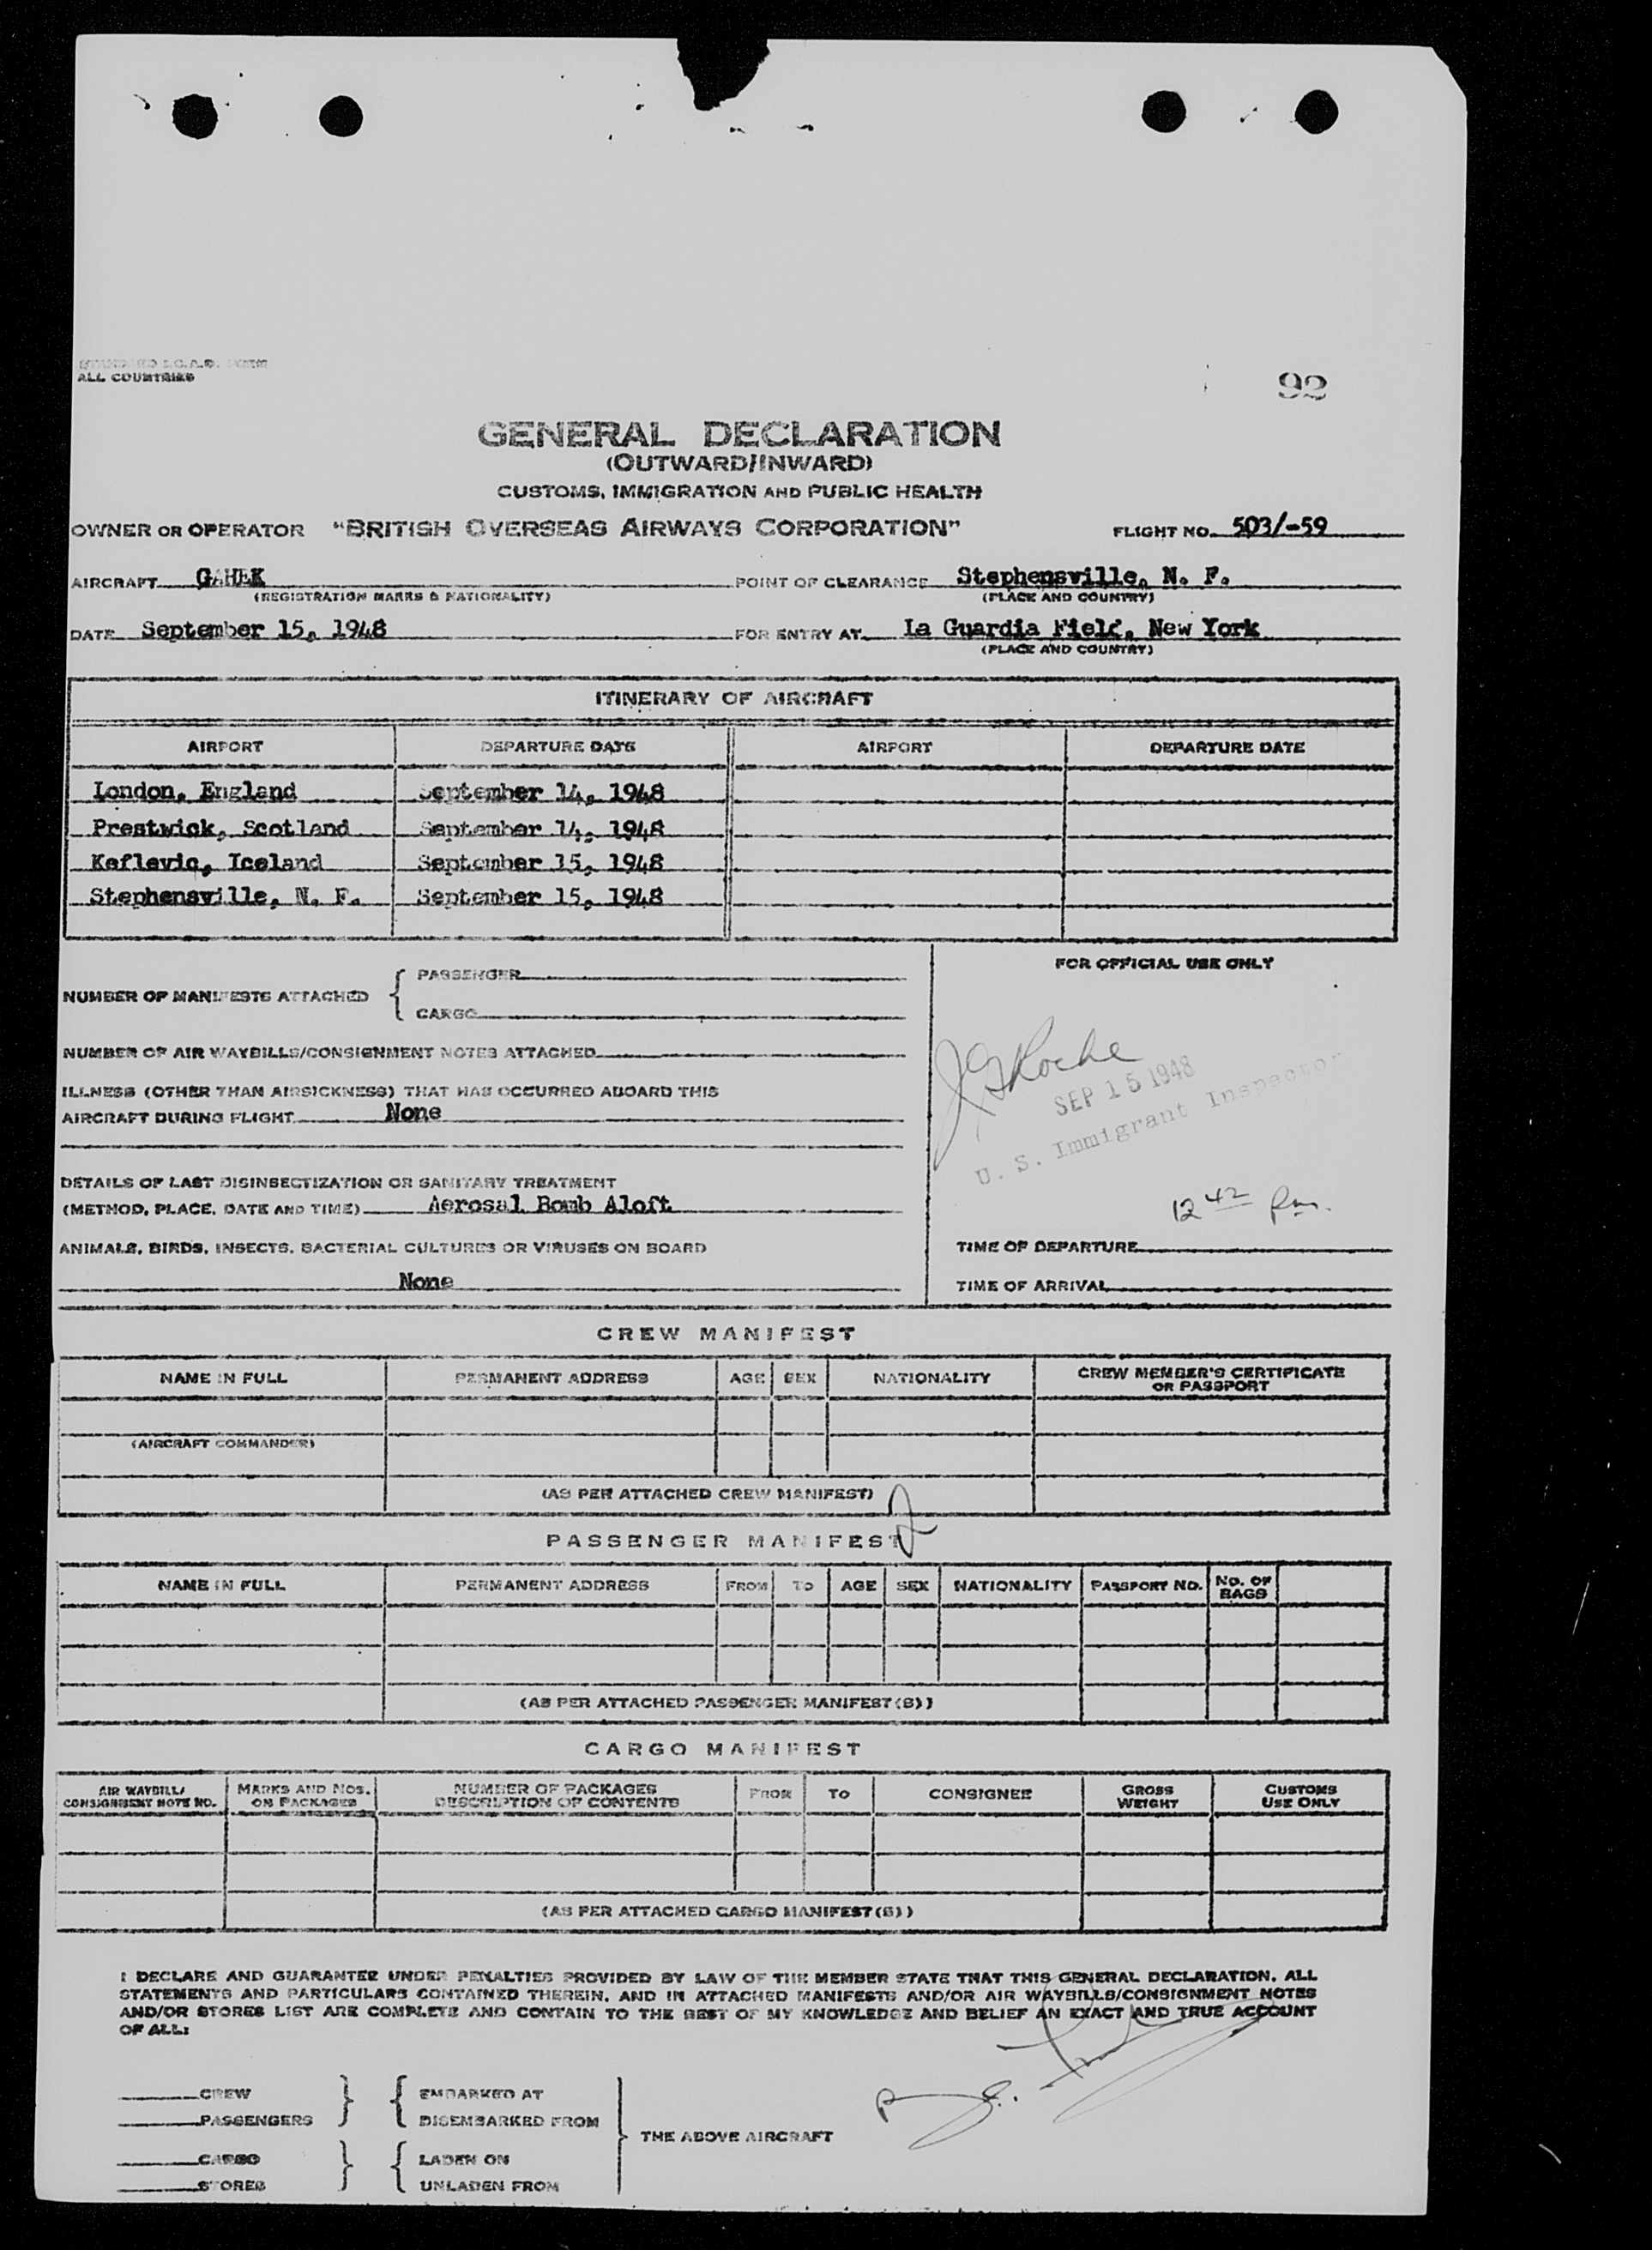 ALL COUNTRIES
92
GENERAL DECLARATION
(OUTWARD/INWARD)
CUSTOMS, IMMIGRATION AND PUBLIC HEALTH
OWNER OR OPERATOR "BRITISH OVERSEAS AIRWAYS CORPORATION" FLIGHT NO. 503/-59
AIRCRAFT GAHEK POINT OF CLEARANCE Stephensville, N. F.
(REGISTRATION MARKS & NATIONALITY) (PLACE AND COUNTRY)
DATE September 15, 1948 FOR ENTRY AT La Guardia Field, New York
(PLACE AND COUNTRY)
ITINERARY OF AIRCRAFT
AIRPORT DEPARTURE DATE AIRPORT DEPARTURE DATE
London, England September 14, 1948
Prestwick, Scotland September 14, 1948
Keflavic, Iceland September 15, 1948
Stephensville, N. F. September 15, 1948
FOR OFFICIAL USE ONLY
PASSENGER
NUMBER OF MANIFESTS ATTACHED
CARGO
NUMBER OF AIR WAYBILLS/CONSIGNMENT NOTES ATTACHED
ILLNESS (OTHER THAN AIRSICKNESS) THAT HAS OCCURRED ABOARD THIS
AIRCRAFT DURING FLIGHT None
JG Roche
SEP 15 1948
U. S. Immigrant Inspector
DETAILS OF LAST DISINSECTIZATION OR SANITARY TREATMENT
(METHOD, PLACE, DATE AND TIME) Aerosal Bomb Aloft
12 42 pm.
ANIMALS, BIRDS, INSECTS, BACTERIAL CULTURES OR VIRUSES ON BOARD
None
TIME OF DEPARTURE
TIME OF ARRIVAL
CREW MANIFEST
NAME IN FULL PERMANENT ADDRESS AGE SEX NATIONALITY CREW MEMBER'S CERTIFICATE
OR PASSPORT
(AIRCRAFT COMMANDER)
(AS PER ATTACHED CREW MANIFEST)
2
PASSENGER MANIFEST
NAME IN FULL PERMANENT ADDRESS FROM TO AGE SEX NATIONALITY PASSPORT NO. NO. OF
BAGS
(AS PER ATTACHED PASSENGER MANIFEST(S))
CARGO MANIFEST
AIR WAYBILL/ MARKS AND NOS. NUMBER OF PACKAGES FROM TO CONSIGNEE GROSS CUSTOMS
CONSIGNMENT NOTE NO. ON PACKAGES DESCRIPTION OF CONTENTS WEIGHT USE ONLY
(AS PER ATTACHED CARGO MANIFEST(S))
I DECLARE AND GUARANTEE UNDER PENALTIES PROVIDED BY LAW OF THE MEMBER STATE THAT THIS GENERAL DECLARATION, ALL
STATEMENTS AND PARTICULARS CONTAINED THEREIN, AND IN ATTACHED MANIFESTS AND/OR AIR WAYBILLS/CONSIGNMENT NOTES
AND/OR STORES LIST ARE COMPLETE AND CONTAIN TO THE BEST OF MY KNOWLEDGE AND BELIEF AN EXACT AND TRUE ACCOUNT
OF ALL:
CREW EMBARKED AT
PASSENGERS DISEMBARKED FROM
THE ABOVE AIRCRAFT
CARGO LADEN ON
STORES UNLADEN FROM